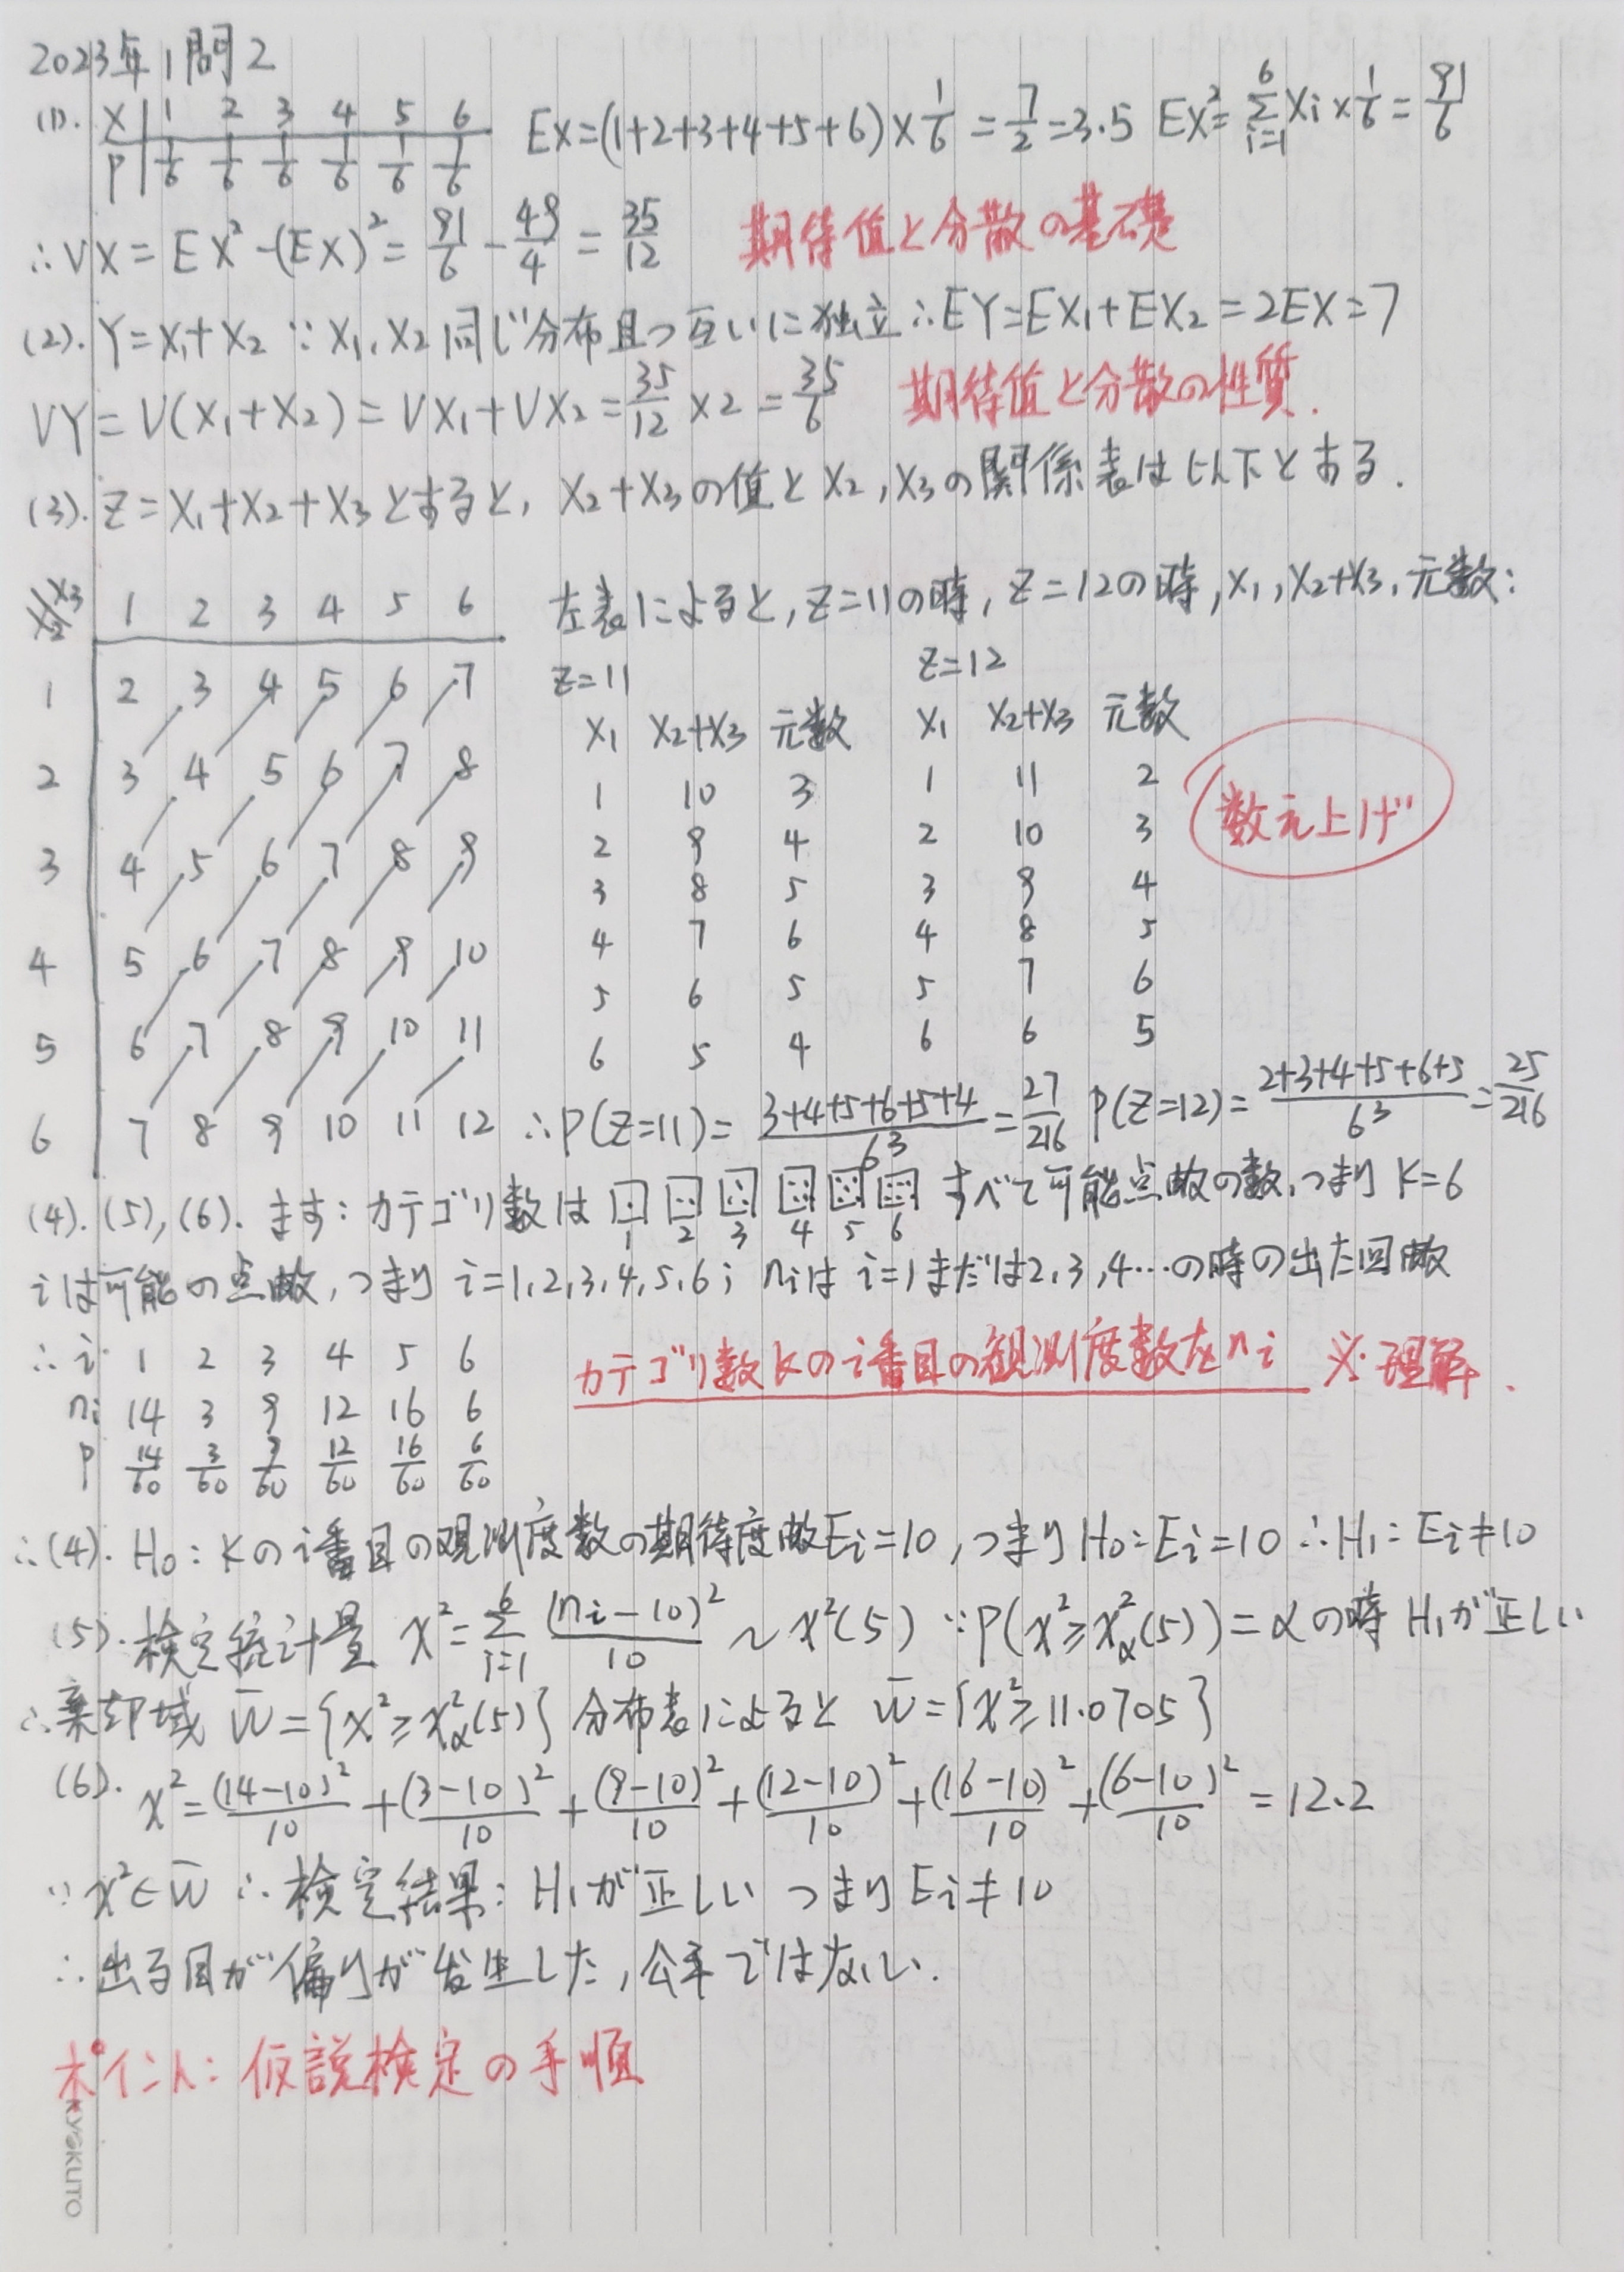 2023年1問2
(1). X 1 2 3 4 5 6 EX=(1+2+3+4+5+6)×1/6=7/2=3.5 EX²=Σ_{i=1}^{6}Xi×1/6=91/6
P 1/6 1/6 1/6 1/6 1/6 1/6
∴VX=EX²-(EX)²=91/6-49/4=35/12 期待值と分散の基礎
(2). Y=X₁+X₂ ∵X₁,X₂同じ分布且つ互いに独立∴EY=EX₁+EX₂=2EX=7
VY=V(X₁+X₂)=VX₁+VX₂=35/12×2=35/6 期待值と分散の性質.
(3). Z=X₁+X₂+X₃とすると, X₂+X₃の値とX₂,X₃の関係表は以下とする.
X₂/X₃ 1 2 3 4 5 6 左表によると,Z=11の時,Z=12の時,X₁,X₂+X₃,元数:
1 2 3 4 5 6 7
2 3 4 5 6 7 8
3 4 5 6 7 8 9
4 5 6 7 8 9 10
5 6 7 8 9 10 11
6 7 8 9 10 11 12
Z=11
X₁ X₂+X₃ 元数
1 10 3
2 9 4
3 8 5
4 7 6
5 6 5
6 5 4
Z=12
X₁ X₂+X₃ 元数
1 11 2
2 10 3
3 9 4
4 8 5
5 7 6
6 6 5
数え上げ
∴P(Z=11)=(3+4+5+6+5+4)/6³=27/216 P(Z=12)=(2+3+4+5+6+5)/6³=25/216
(4).(5),(6). ます:カテゴリ数は 1 2 3 4 5 6 すべて可能点数の数,つまりK=6
iは可能の点数,つまりi=1,2,3,4,5,6; niはi=1まだは2,3,4…の時の出た回数
∴i 1 2 3 4 5 6
ni 14 3 9 12 16 6
P 14/60 3/60 9/60 12/60 16/60 6/60
カテゴリ数kのi番目の観測度数をni ※理解.
∴(4). H₀:Kのi番目の观測度数の期待度数Ei=10,つまりH₀:Ei=10∴H₁:Ei≠10
(5).検定統計量 χ²=Σ_{i=1}^{6}(ni-10)²/10~χ²(5) ∵P(χ²≥χ²_α(5))=αの時H₁が正しい
∴棄却域 W̄={χ²≥χ²_α(5)}分布表によると W̄={χ²≥11.0705}
(6). χ²=(14-10)²/10+(3-10)²/10+(9-10)²/10+(12-10)²/10+(16-10)²/10+(6-10)²/10=12.2
∵χ²∈W̄ ∴検定結果:H₁が正しい つまりEi≠10
∴出る目が偏りが発生した,公平ではない.
ポイント:仮説検定の手順
KYOKUTO